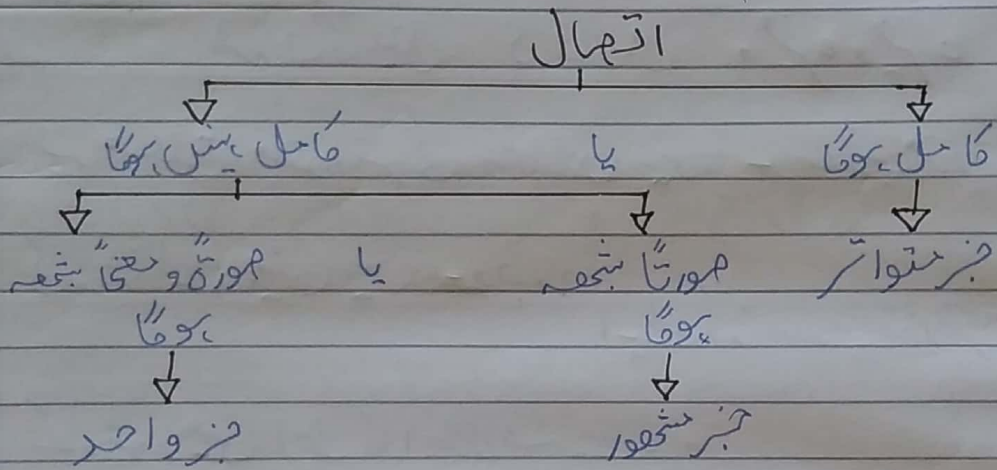 اتصال
کامل ہوگا یا کامل نہیں ہوگا
خبر متواتر صورتاً شبھہ یا صورۃً و معنیً شبھہ
ہوگا ہوگا
خبر مشھور خبر واحد